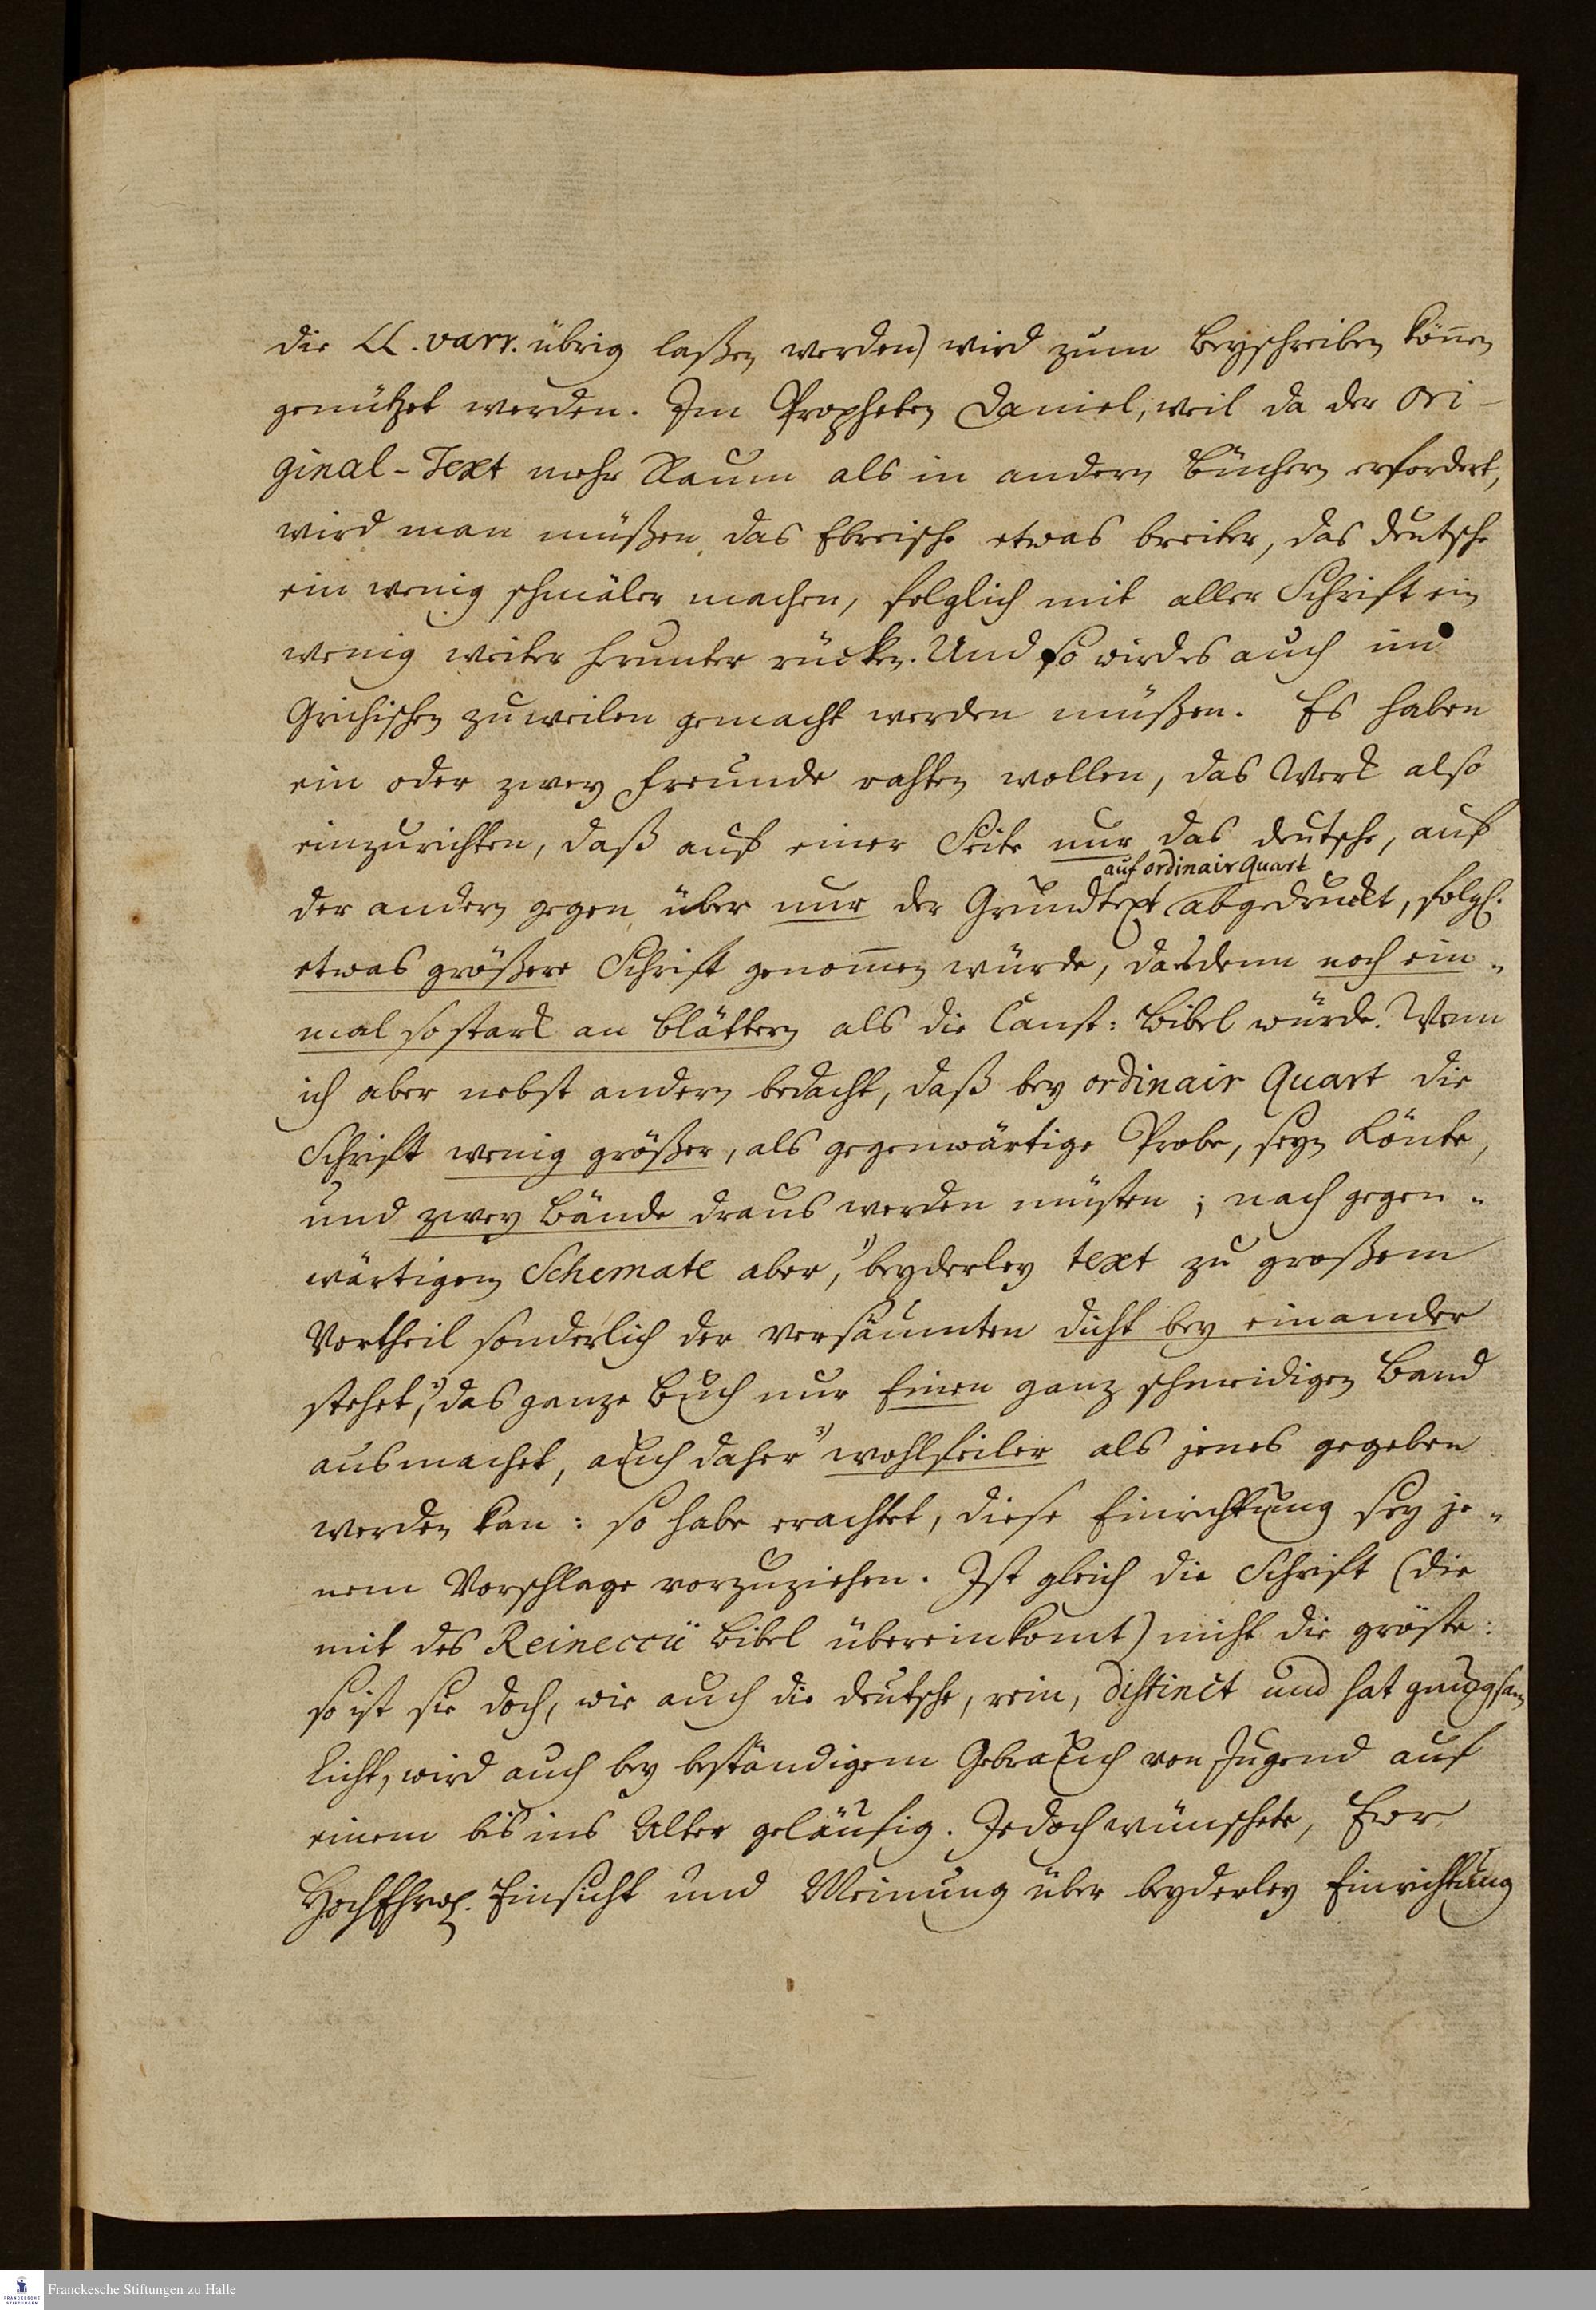 die LL. varr. übrig laßen werden) wird zum beyschreiben könen
genützet werden. Im Propheten Daniel, weil da der Ori-
ginal-Text mehr Raum als in andern Büchern erfordert,
wird man müßen das Ebreische etwas breiter, das deutsche
ein wenig schmäler machen, folglich mit aller Schrift ein
wenig weiter herunter rücken. Und so wird es auch im
Grichischen zuweilen gemacht werden müßen. Es haben
ein oder zwey Freunde rahten wollen, das Werk also
einzurichten, daß auf einer Seite nur das deutsche, auf
auf ordinair Quart
der andern gegen über nur der Grundtext abgedruckt, folgl.
etwas größere Schrift genomen würde, da es denn noch ein-
mal so stark an blättern als die Canst: Bibel würde. Wenn
ich aber nebst andern bedacht, daß bey ordinair Quart die
Schrift wenig größer, als gegenwärtige Probe, seyn könte,
und zwey Bände draus werden müsten; nach gegen-
wärtigem Schemate aber, 1) beyderley text zu großem
Vortheil sonderlich der versäumten dicht bey einander
stehet, 2) das ganze Buch nur Einen ganz schmeidigen Band
ausmachet, auch daher 3) wohlfeiler als jenes gegeben
werden kan: so habe erachtet, diese Einrichtung sey je-
nem Vorschlage vorzuziehen. Ist gleich die Schrift (die
mit des Reineccii Bibel übereinkomt) nicht die gröste:
so ist sie doch, wie auch die deutsche, rein, distinct und hat gnugsam
licht, wird auch bey beständigem Gebrauch von Jugend auf
einem bis ins Alter geläufig. Jedoch wünschete, Ewr
HochEhrw. Einsicht und Meinung über beyderley Einrichtung
Franckesche Stiftungen zu Halle
FRANCKESCHE
STIFTUNGEN